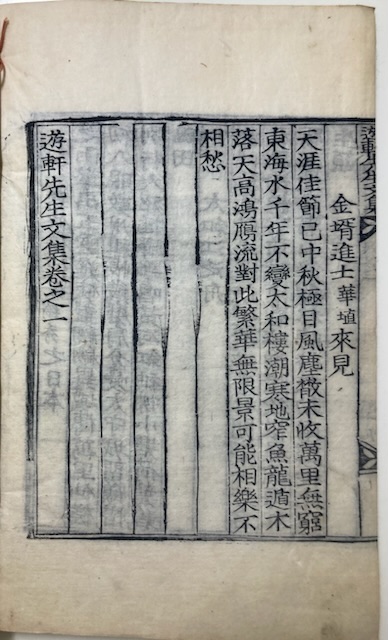 金壻進士華埴來見
天涯佳節已中秋極目風塵撒未收萬里無窮
東海水千年不變太和樓潮寒地窄魚龍遁木
落天高鴻鴈流對此繁華無限景可能相樂不
相愁
遊軒先生文集卷之一